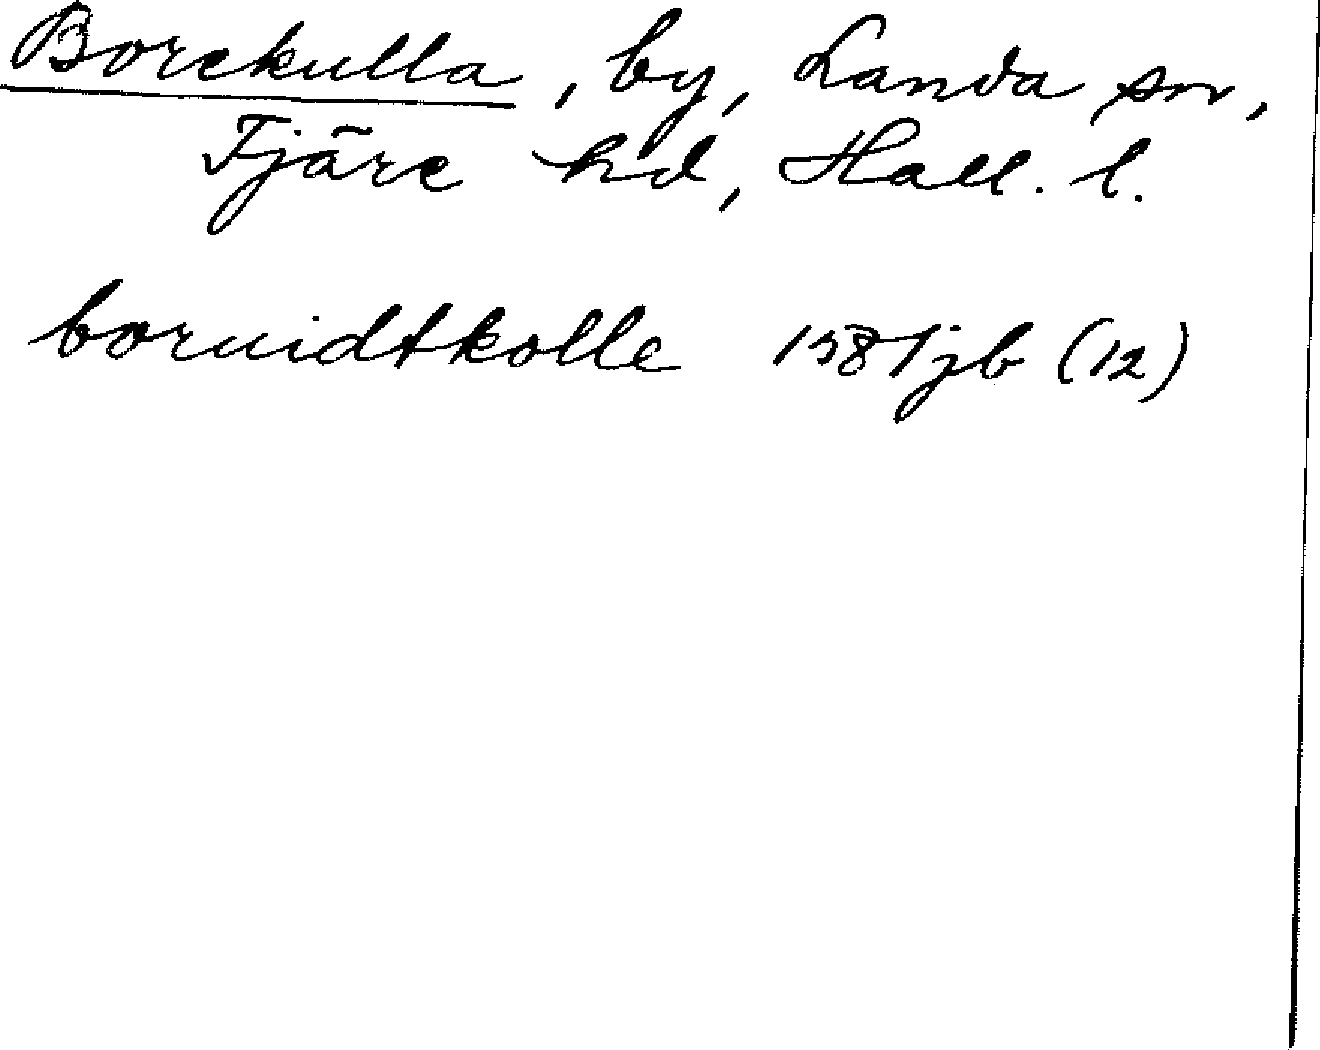 Borekulla, by, Landa sn,
Fjäre hd, Hall. l.
boruidtkolle 1581 jb (12)